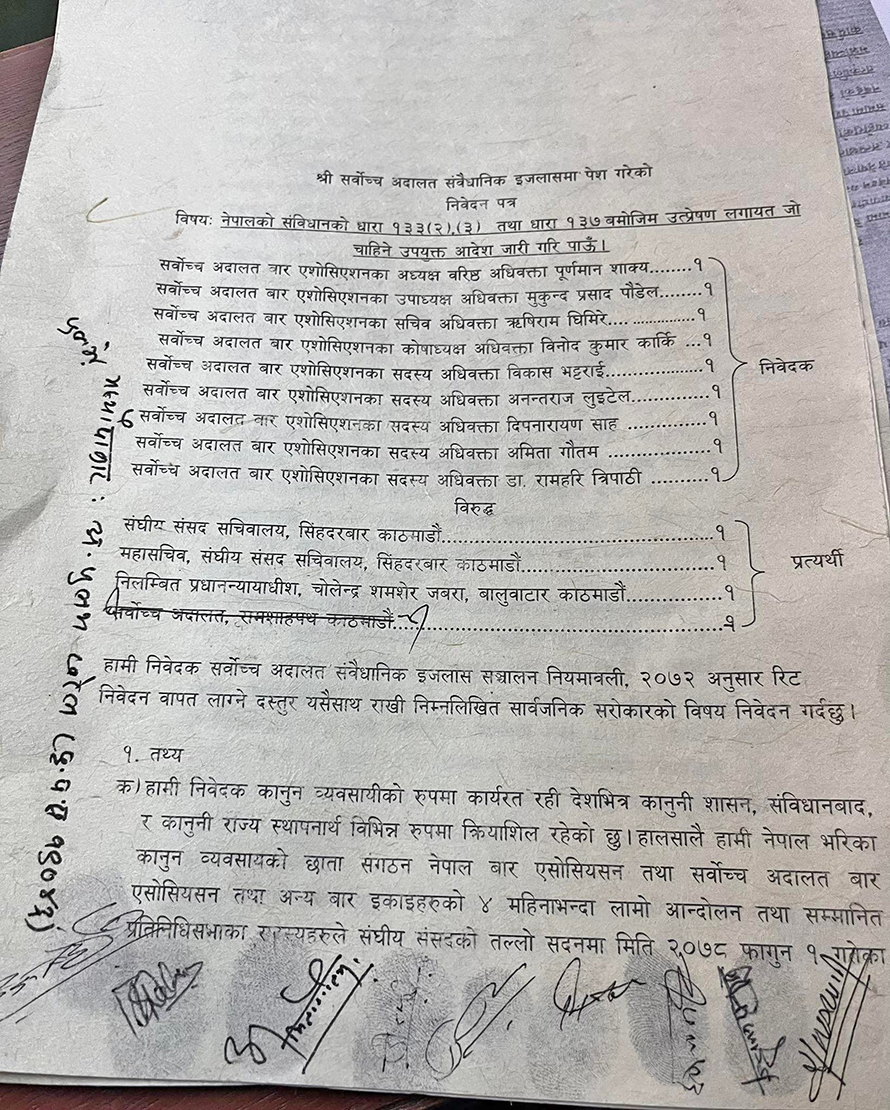 श्री सर्वोच्च अदालत संवैधानिक इजलासमा पेश गरेको
निवेदन पत्र
विषयः नेपालको संविधानको धारा १३३(२),(३) तथा धारा १३७ बमोजिम उत्प्रेषण लगायत जो
चाहिने उपयुक्त आदेश जारी गरि पाऊँ।
सर्वोच्च अदालत बार एशोसिएशनका अध्यक्ष वरिष्ठ अधिवक्ता पूर्णमान शाक्य........१
सर्वोच्च अदालत बार एशोसिएशनका उपाध्यक्ष अधिवक्ता मुकुन्द प्रसाद पौडेल........१
सर्वोच्च अदालत बार एशोसिएशनका सचिव अधिवक्ता ऋषिराम घिमिरे.... ...............१
सर्वोच्च अदालत बार एशोसिएशनका कोषाध्यक्ष अधिवक्ता विनोद कुमार कार्कि ...१
सर्वोच्च अदालत बार एशोसिएशनका सदस्य अधिवक्ता विकास भट्टराई.....................१
सर्वोच्च अदालत बार एशोसिएशनका सदस्य अधिवक्ता अनन्तराज लुइटेल...............१
सर्वोच्च अदालत बार एशोसिएशनका सदस्य अधिवक्ता दिपनारायण साह ...............१
सर्वोच्च अदालत बार एशोसिएशनका सदस्य अधिवक्ता अमिता गौतम ...................१
सर्वोच्च अदालत बार एशोसिएशनका सदस्य अधिवक्ता डा. रामहरि त्रिपाठी ..........१
निवेदक
विरुद्ध
संघीय संसद सचिवालय, सिंहदरबार काठमाडौं................................................१
महासचिव, संघीय संसद सचिवालय, सिंहदरबार काठमाडौं..................................१
निलम्बित प्रधानन्यायाधीश, चोलेन्द्र शमशेर जबरा, बालुवाटार काठमाडौं.................१
सर्वोच्च अदालत, रामशाहपथ काठमाडौं..........................................................१
प्रत्यर्थी
हामी निवेदक सर्वोच्च अदालत संवैधानिक इजलास सञ्चालन नियमावली, २०७२ अनुसार रिट
निवेदन वापत लाग्ने दस्तुर यसैसाथ राखी निम्नलिखित सार्वजनिक सरोकारको विषय निवेदन गर्दछु।
१. तथ्य
क) हामी निवेदक कानुन व्यवसायीको रुपमा कार्यरत रही देशभित्र कानुनी शासन, संविधानबाद,
र कानुनी राज्य स्थापनार्थ विभिन्न रुपमा क्रियाशिल रहेको छु। हालसालै हामी नेपाल भरिका
कानुन व्यवसायको छाता संगठन नेपाल बार एसोसियसन तथा सर्वोच्च अदालत बार
एसोसियसन तथा अन्य बार इकाइहरुको ४ महिनाभन्दा लामो आन्दोलन तथा सम्मानित
प्रतिनिधिसभाका सदस्यहरुले संघीय संसदको तल्लो सदनमा मिति २०७८ फागुन १ गतेका